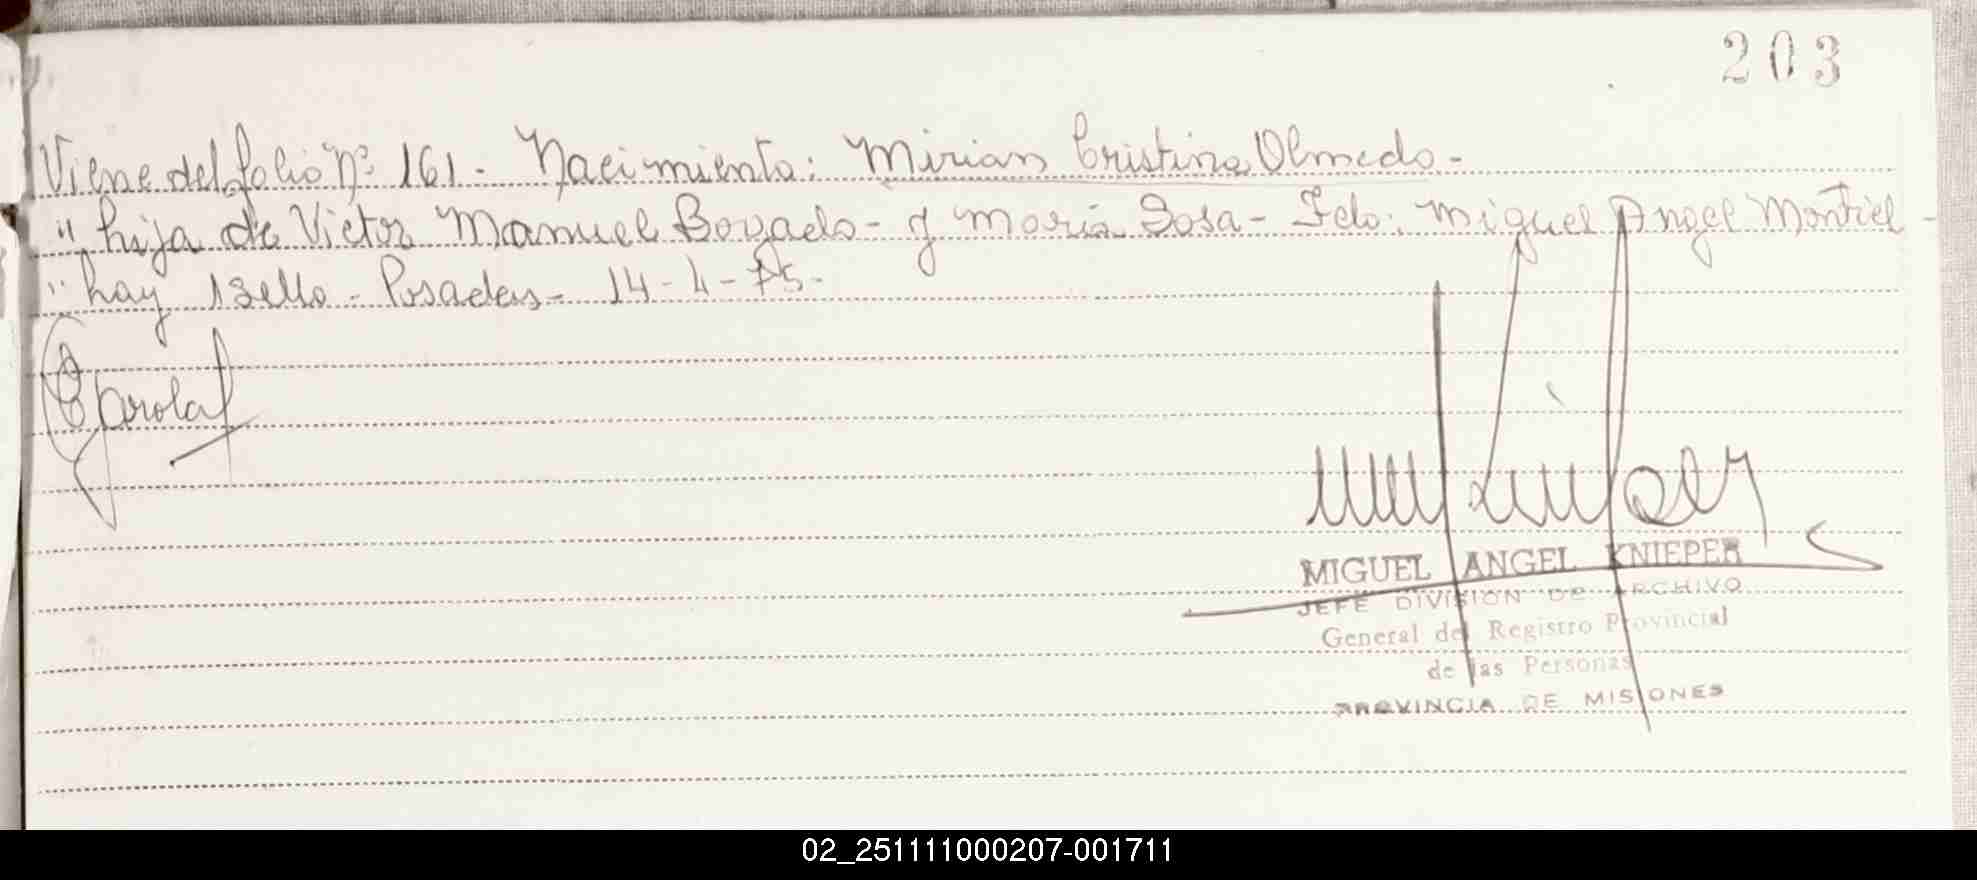 203
Viene del folio Nº 161. Nacimiento: Mirian Cristina Olmedo.-
" hija de Victor Manuel Bovado- y Maria Sosa- Fdo: Miguel Angel Montiel-
" hay 1 sello- Posadas- 14-4-75-
MIGUEL ANGEL KNIEPER
JEFE DIVISION DE ARCHIVO
General del Registro Provincial
de las Personas
PROVINCIA DE MISIONES
02_251111000207-001711